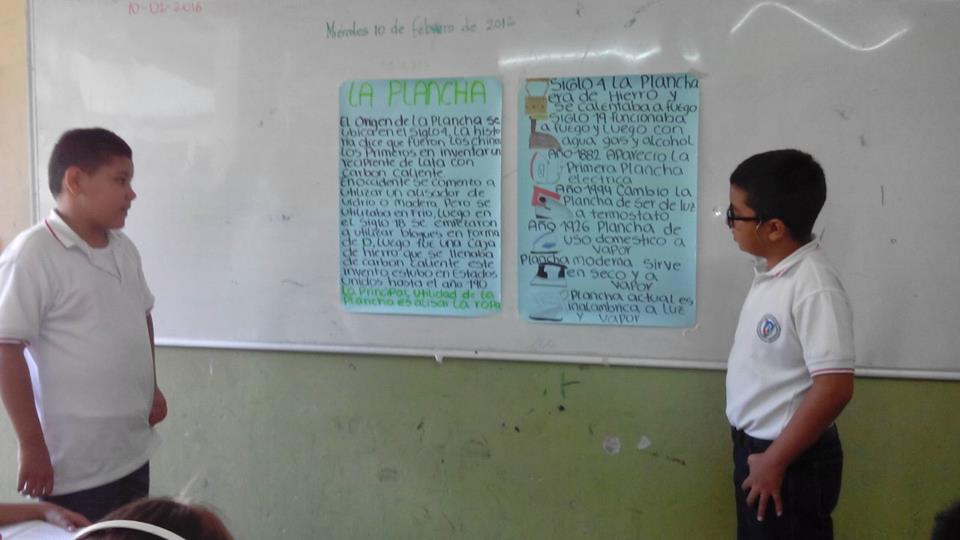 10-02-2016
Miércoles 10 de febrero de 2016
LA PLANCHA
El Origen de La Plancha se
ubica en el siglo 4. La histo
ria dice que fueron Los chinos
Los Primeros en inventar un
recipiente de Lata con
carbon caliente.
En occidente se comento a
utilizar un alisador de
vidrio o madera. Pero se
utilizaba en frio, Luego en
el siglo 18 se empezaron
a utilizar bloques en forma
de p, Luego fue una caja
de hierro que se llenaba
de carbon caliente este
invento estubo en Estados
Unidos hasta el año 190
La principal utilidad de la
Plancha es alisar La ropa
SiGlo 4 La Plancha
era de Hierro y
Se Calentaba a fuego
SiGlo 19 funcionaba
a fuego y Luego con
agua gas y alcohol
AÑO-1882 Aparecio La
Primera Plancha
electrica
AÑO-1994 Cambio La
Plancha de ser de Luz
a termostato
AÑO 1926 Plancha de
uso domestico a
vapor
Plancha moderna sirve
en seco y a
vapor
Plancha actual es
inalambrica, a luz
y vapor